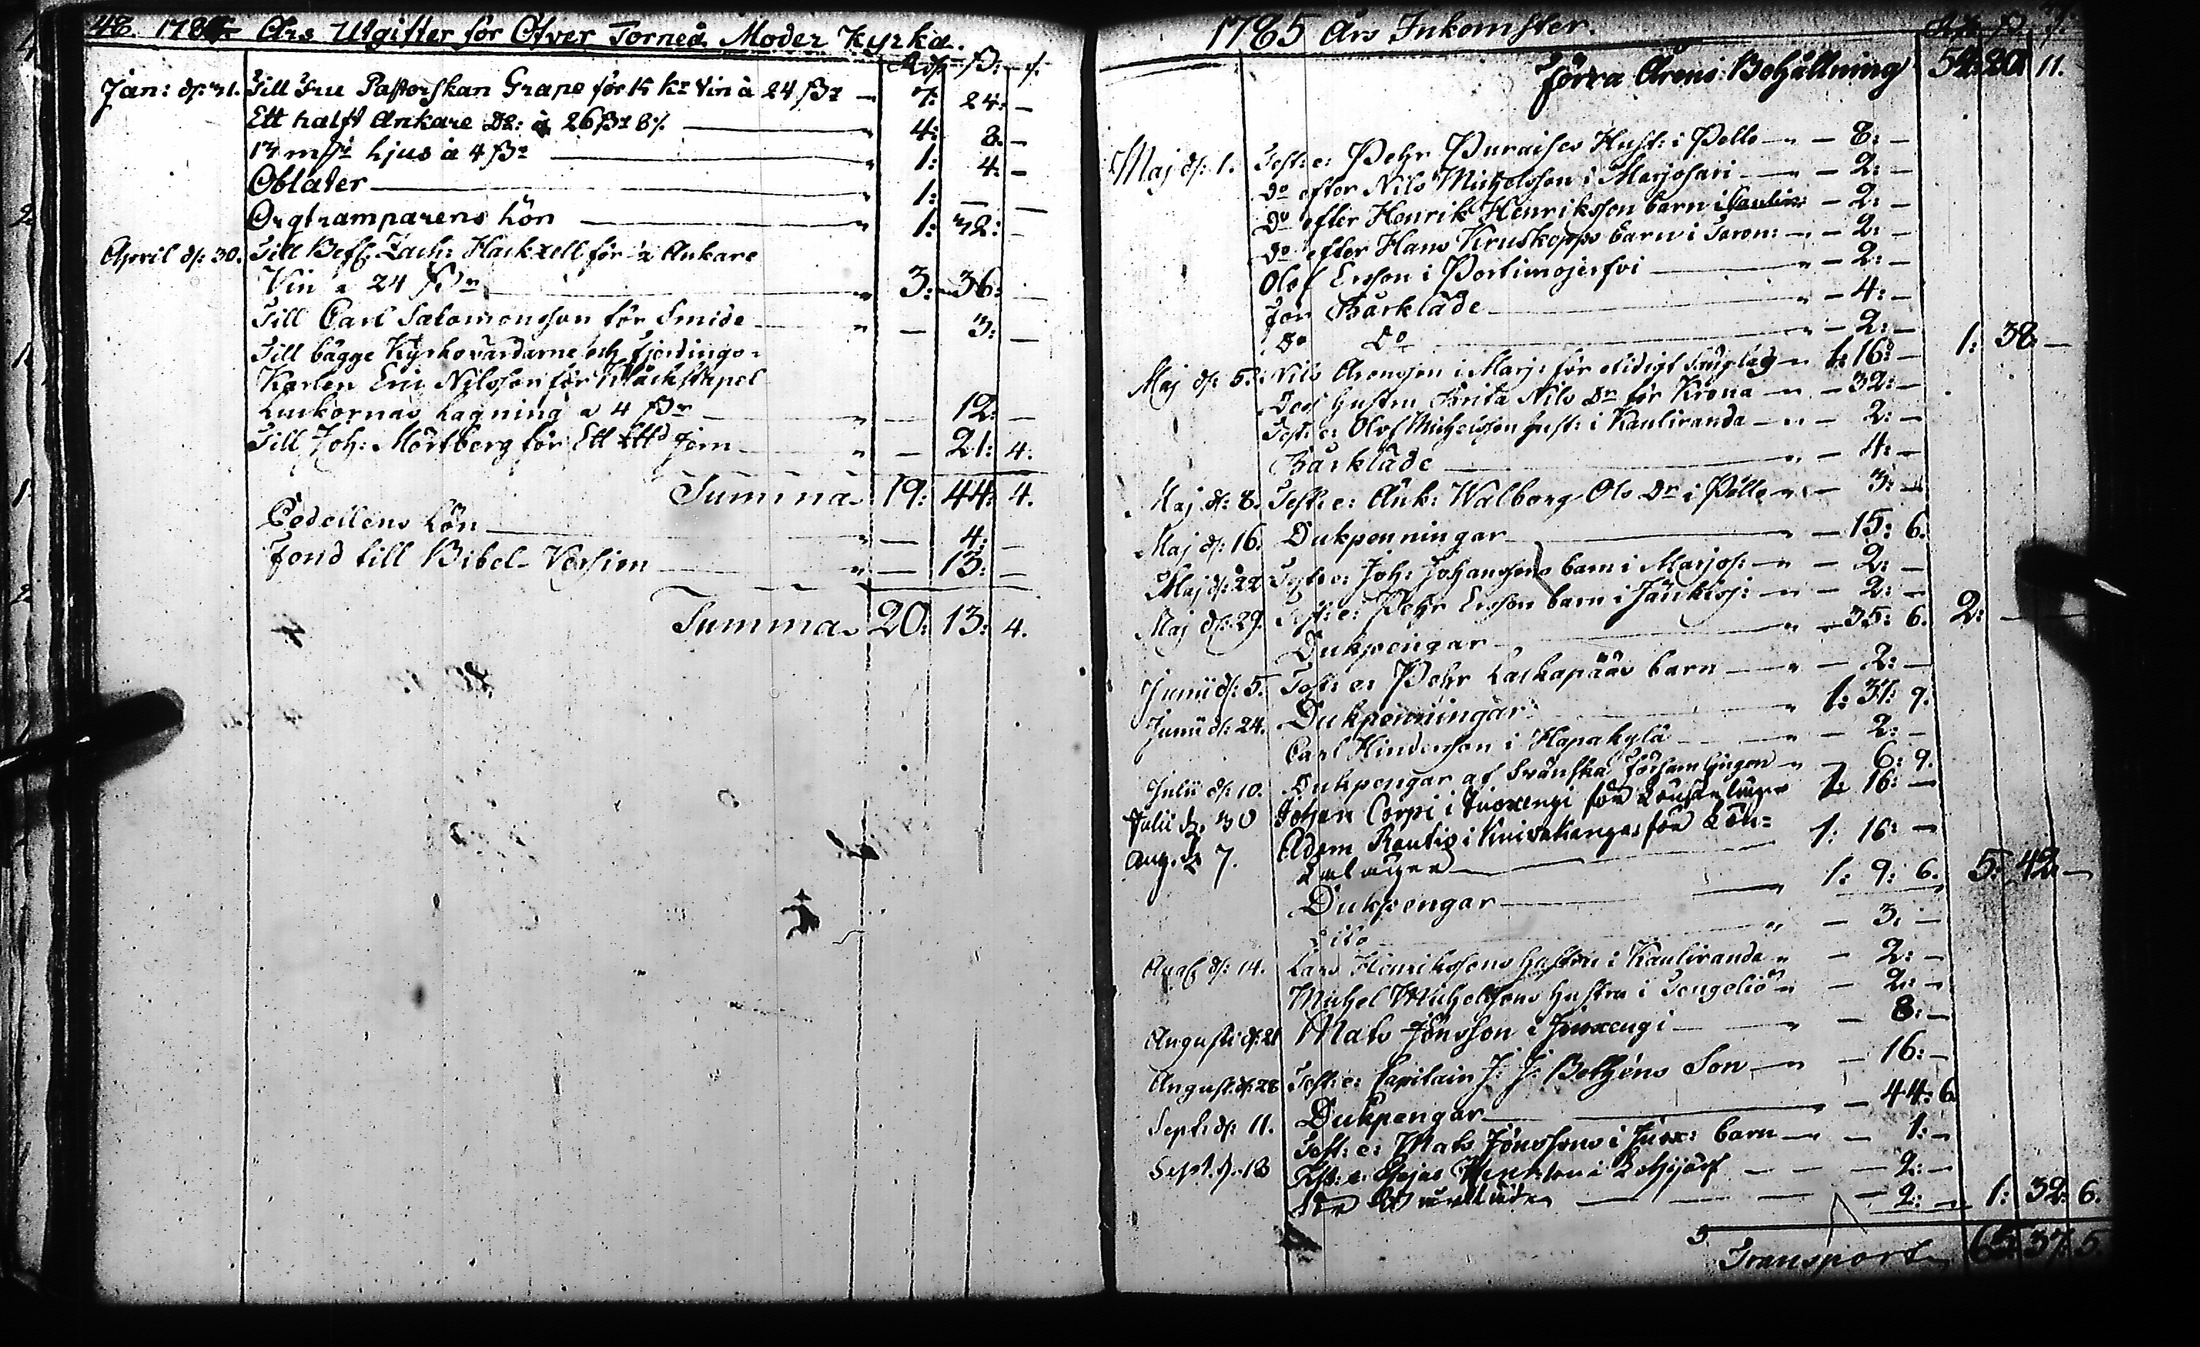 48. 178 Års Utgifter för Öfver Torneå Moder Kyrka.
Rdr ß: r.
Jan: d: 31. Till Fru Pastorskan Grape för 15 kr Vin à 24 ßr — 7: 24: —
Ett halft Ankare Do: à 26 ßr 8 r. — 4: 8: —
13 m ljus à 4 ßr — 1: 4: —
Oblater — 1: — —
Orgtramparens Lön — 1: 32: —
April d: 30. Till Bef: Zach: Hackzell för ½ Ankare
Vin à 24 ßr — 3: 36: —
Till Carl Salomonsson för Smide — — 3: —
Till bägge Kyrkovärdarne och fjerdings-
Karlen Eric Nilsson för
Luckornas lagning à 4 ßr — — 12: —
Till Joh: Mörtberg för Ett Jern — — 21: 4.
Summa 19: 44: 4.
Pedellens Lön — — 4: —
Fond till Bibel-Version — — 13: —
Summa 20: 13: 4.
1785 Års Inkomster.
Rdr ß. r.
Förra Årens Behållning 54: 20: 11.
Maj d: 1. Test: e: Pehr Puraises Hust: i Pello — 8: —
Do efter Nils Michelsson i Marjosari — 2: —
Do efter Henrik Henriksson barn i — 2: —
Do efter Hans Kruskopps barn i — 2: —
Olof Ersson i Portimojerfvi — 2: —
För Bårkläde — 4: —
Do Do — 2: — 1: 38: —
Maj d: 5. Nils Aronsson i Marj: för otidigt — 1: 16: —
Dess hustru Brita Nils Dr för Krona — 32: —
Test: e: Olof Michelsson hust: i Kauliranda — 2: —
Bårkläde — 4: —
Maj d: 8. Test: e: Änk: Walborg Ols Dr i Pello — 3: —
Maj d: 16. Dukpenningar — 15: 6.
Maj d: 22 Test: e: Joh: Johanssons barn i Marjos: — 2: —
Maj d: 29. Test: e: Pehr Ersson barn i Jänkisj: — 2: —
Dukpengar — 35: 6. 2: — —
Junii d: 5. Test: e: Pehr Laskapääs barn — 2: —
Junii d: 24. Dukpenningar — 1: 37: 9.
Carl Hindersson i Hapakylä — 2: —
Julii d: 10. Dukpengar af Svänska Församlingen — 6: 9.
Julii d. 30 Johan Corpi i Juoxengi för — 1: 16: —
Aug. d. 7. Adam Rautio i för — 1: 16: —
Dukpengar — 1: 9: 6. 5: 42: —
Dito — 3: —
Aug: d: 14. Lars Henrikssons hustru i Kauliranda — 2: —
Michel Michelssons hustru i Tengeliö — 2: —
Augusti d: 21 Mats Jönsson i Juoxengi — 8: —
August: d: 28 Test: e: Capitain J: J: Son — 16: —
Sept: d: 11. Dukpengar — 44: 6.
Test: e: Mats Jönssons i Juox: barn — 1: —
Sept. d. 18 Test: e: — 2: —
— 2: — 1: 32: 6.
Transport 65: 37: 5.